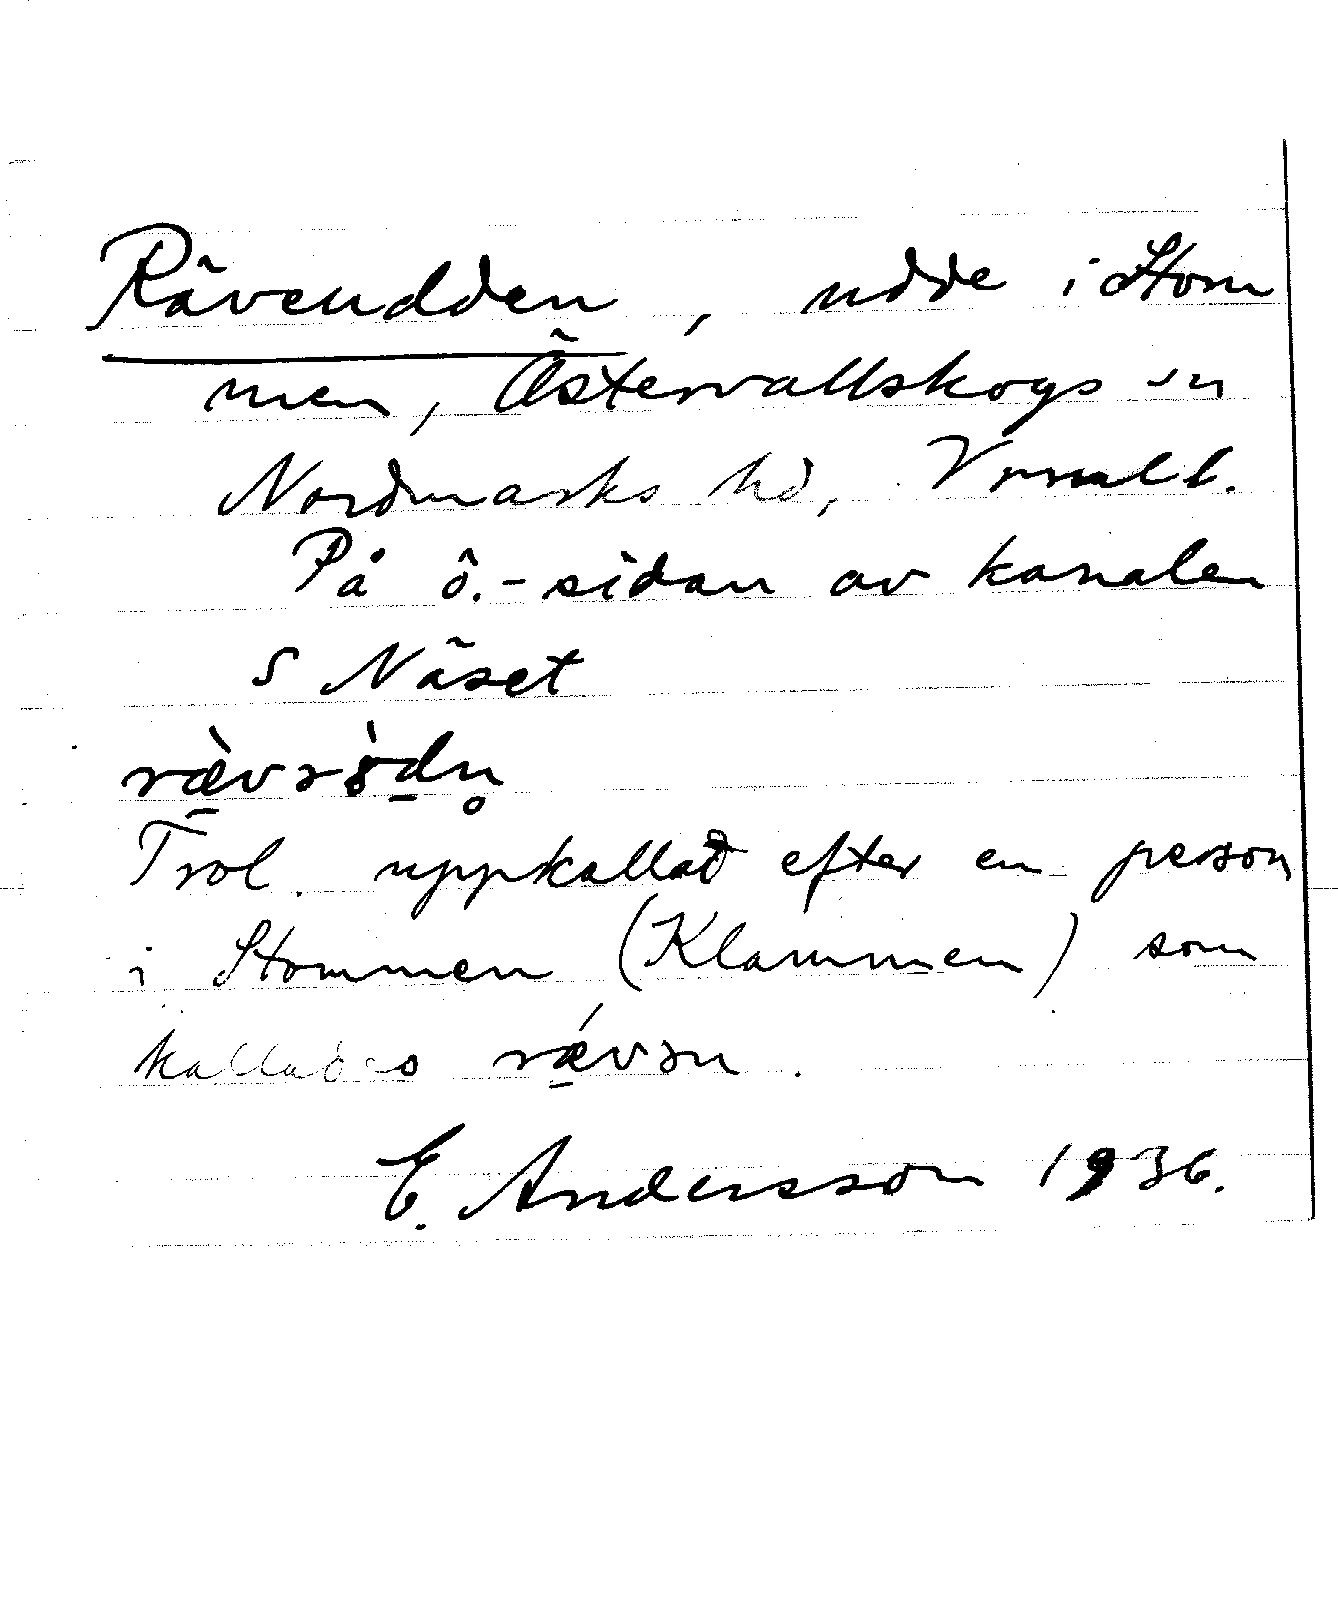 Rävendden, udde i Stom
men, Östervallskogs sn
Nordmarks hd, Vrmlt.
På ö.-sidan av kanalen
S Näset
Trol. uppkallad efter en person
i Stommen (Klammen) som
kallades rǽvən.
E. Andersson 1936.